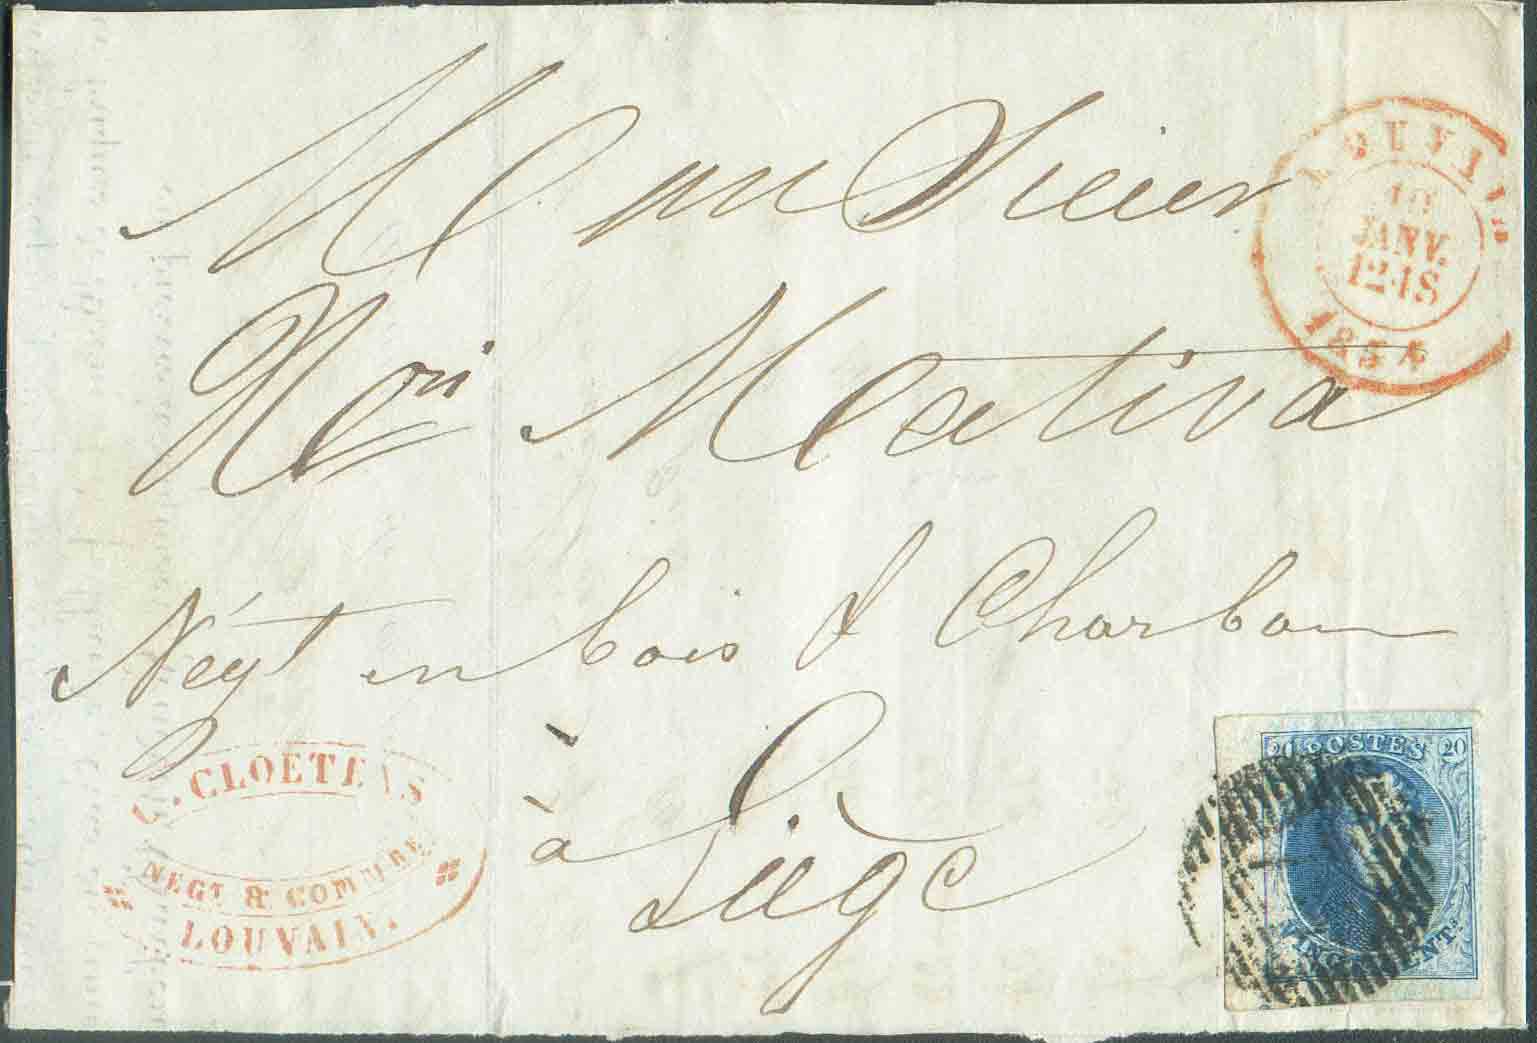 Monsieur
Hri Mativa
Négt en bois & Charbon
à
Liège
LOUVAIN
10
JANV.
12-1S
1854
C. CLOETENS
NEGT & COMMRE
LOUVAIN.
20 POSTES 20
VINGT CENTS